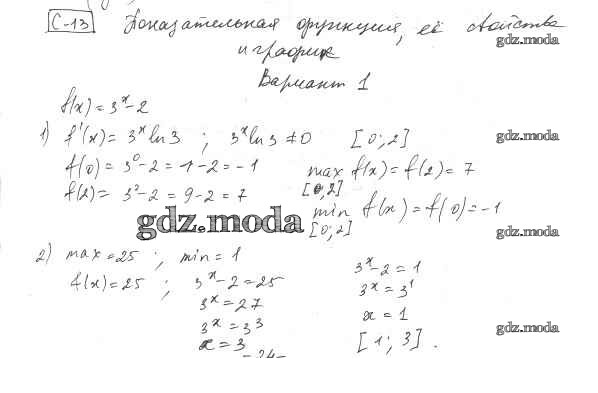 С-13 Показательная функция, её свойства
и график
gdz.moda
Вариант 1
f(x) = 3^x - 2
1) f'(x) = 3^x ln 3 ; 3^x ln 3 ≠ 0 [0; 2]
gdz.moda
f(0) = 3^0 - 2 = 1 - 2 = -1
max f(x) = f(2) = 7
[0; 2]
f(2) = 3^2 - 2 = 9 - 2 = 7
min f(x) = f(0) = -1
[0; 2]
gdz.moda
gdz.moda
2) max = 25 ; min = 1
f(x) = 25 ; 3^x - 2 = 25
3^x = 27
3^x = 3^3
x = 3
3^x - 2 = 1
3^x = 3^1
x = 1
[1; 3].
gdz.moda
-24-